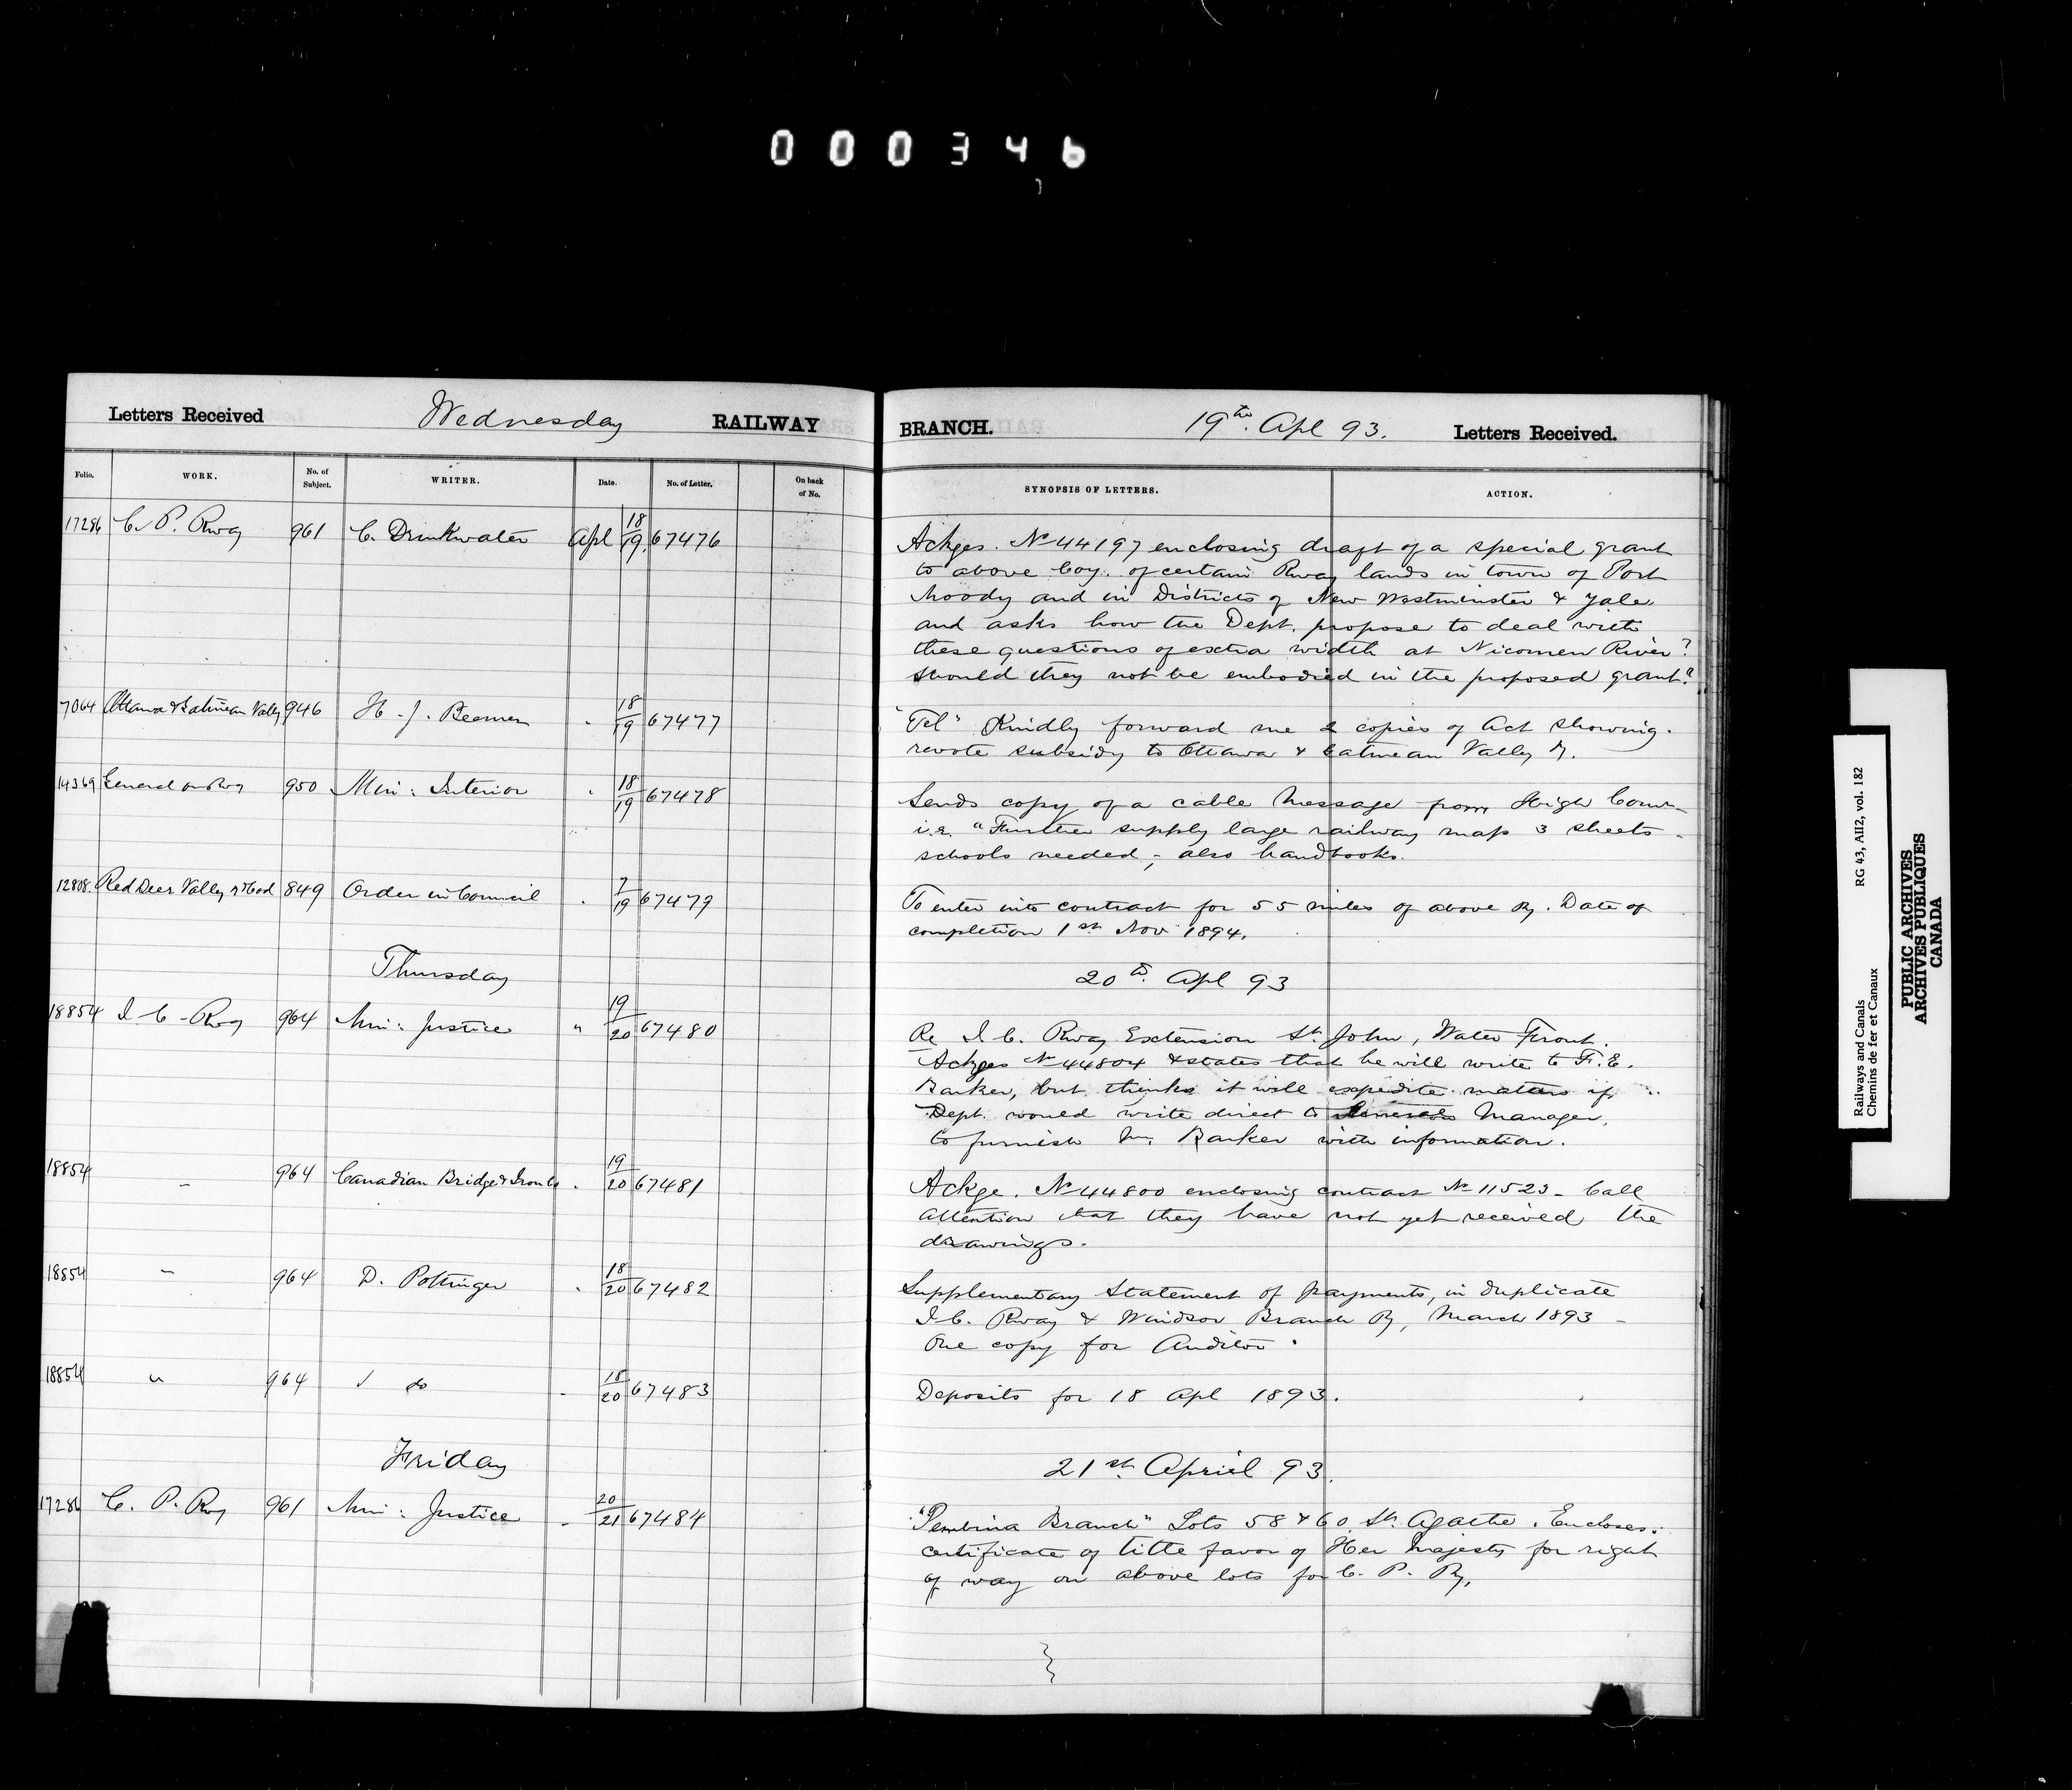 000346
Letters Received Wednesday RAILWAY BRANCH. 19th. Apl 93. Letters Received.
Folio. WORK. No. of Subject. WRITER. Date. No. of Letter. On back of No. SYNOPSIS OF LETTERS. ACTION.
17286 C. P. Rway 961 C. Drinkwater Apl 18/19 67476
Ackges. No 44197 enclosing draft of a special grant
to above Coy. of certain Rway lands in town of Port
Moody and in Districts of New Westminster & Yale,
and asks how the Dept. propose to deal with
these questions of extra width at Nicomen River?
Should they not be embodied in the proposed grant?
7064 Ottawa & Gatineau Valley 946 H. J. Beemer " 18/19 67477
"Tel" Kindly forward me 2 copies of Act showing
revote subsidy to Ottawa & Gatineau Valley Ry.
14369 General on Rwy 950 Min: Interior " 18/19 67478
Sends copy of a cable message from High Com-
i.e. "Further supply large railway map 3 sheets -
schools needed; also handbooks.
12808. Red Deer Valley Ry & Coal 849 Order in Council " 7/19 67479
To enter into contract for 55 miles of above Ry. Date of
completion 1st Nov 1894.
Thursday 20th. Apl 93
18854 I. C. Rway 964 Min: Justice " 19/20 67480
Re I. C. Rway Extension St. John, Water Front.
Ackges No 44804 & states that he will write to F. E.
Barker, but thinks it will expedite matters if
Dept. would write direct to Manager,
to furnish Mr. Barker with information.
18854 " 964 Canadian Bridge & Iron Co " 19/20 67481
Ackge. No 44800 enclosing contract No 11523 - Call
attention that they have not yet received the
drawings.
18854 " 964 D. Pottinger " 18/20 67482
Supplementary Statement of payments, in duplicate
I. C. Rway & Windsor Branch Ry, March 1893 -
One copy for Auditor.
18854 " 964 " do " 18/20 67483
Deposits for 18 Apl 1893.
Friday 21st April 93.
17286 C. P. Rwy 961 Min: Justice " 20/21 67484
"Pembina Branch" Lots 58 & 60, St. Agathe. Encloses
certificate of title favor of Her Majesty for right
of way on above lots for C. P. Ry,
Railways and Canals RG 43, AII2, vol. 182
Chemins de fer et Canaux
PUBLIC ARCHIVES
ARCHIVES PUBLIQUES
CANADA